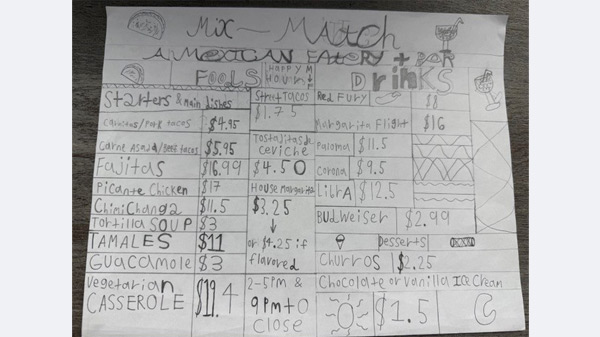 Mix-Match
A MEXICAN EATERY + BAR
FOOLS
HAPPY HOUR M F
DrinKS
Starters & Main Dishes
/Pork tacos $4.95
Carne Asada/Beef tacos $5.95
Fajitas $16.99
Picante Chicken $17
ChimiChanga $11.5
Tortilla SOUP $3
TAMALES $11
Guacamole $3
Vegetarian CASSEROLE $19.4
Street TACOS
$1.75
Tostaditas de
ceviche
$4.50
House Margarita
$3.25
↓
or $4.25 if
flavored
2-5PM &
9PM to
close
Red Fury $8
Margarita Flight $16
Paloma $11.5
Corona $9.5
LibrA $12.5
BUDWeiser $2.99
Desserts
Churros $2.25
Chocolate or Vanilla ICE Cream
$1.5